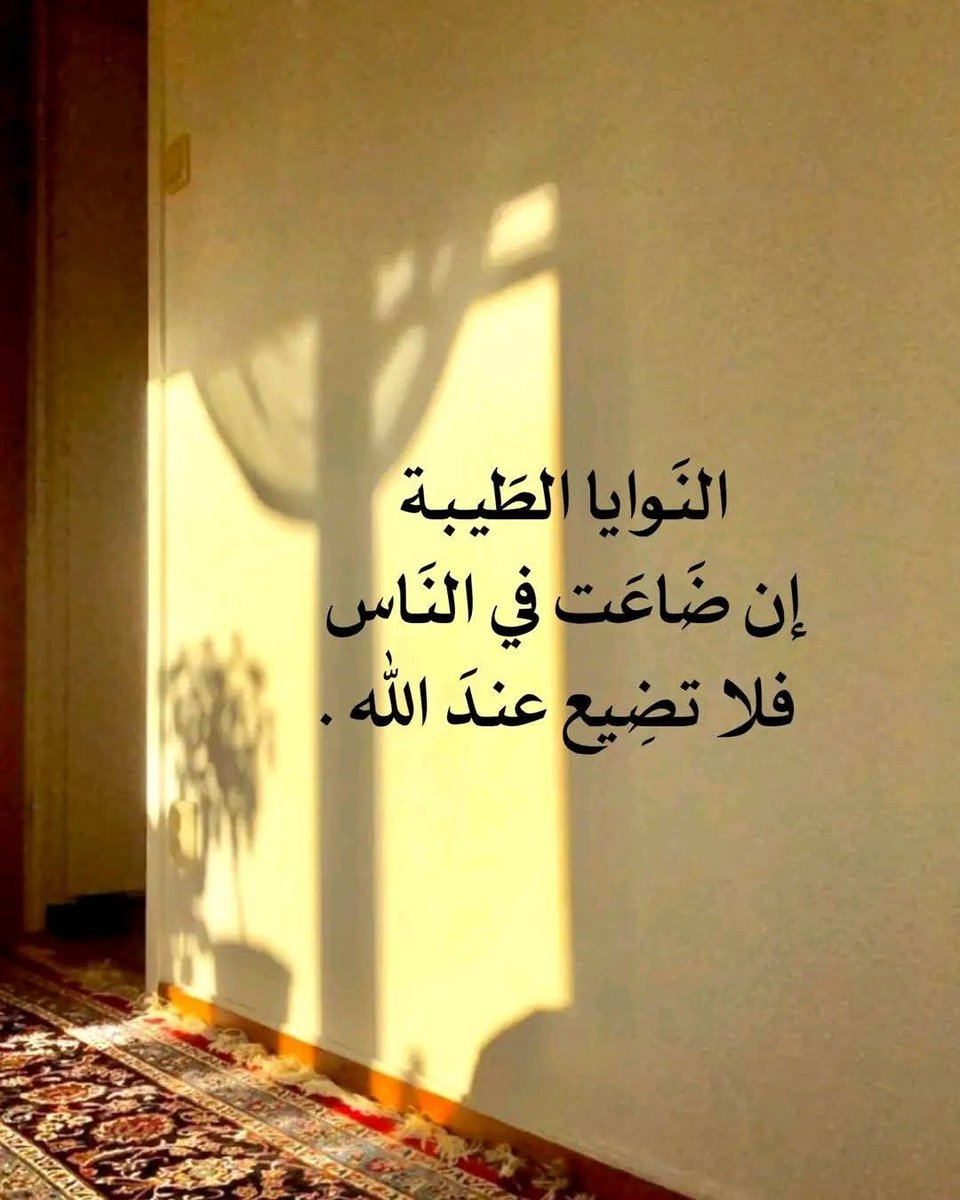 النَوايا الطَيبة
إن ضَاعَت في النَاس
فلا تضِيع عندَ الله .